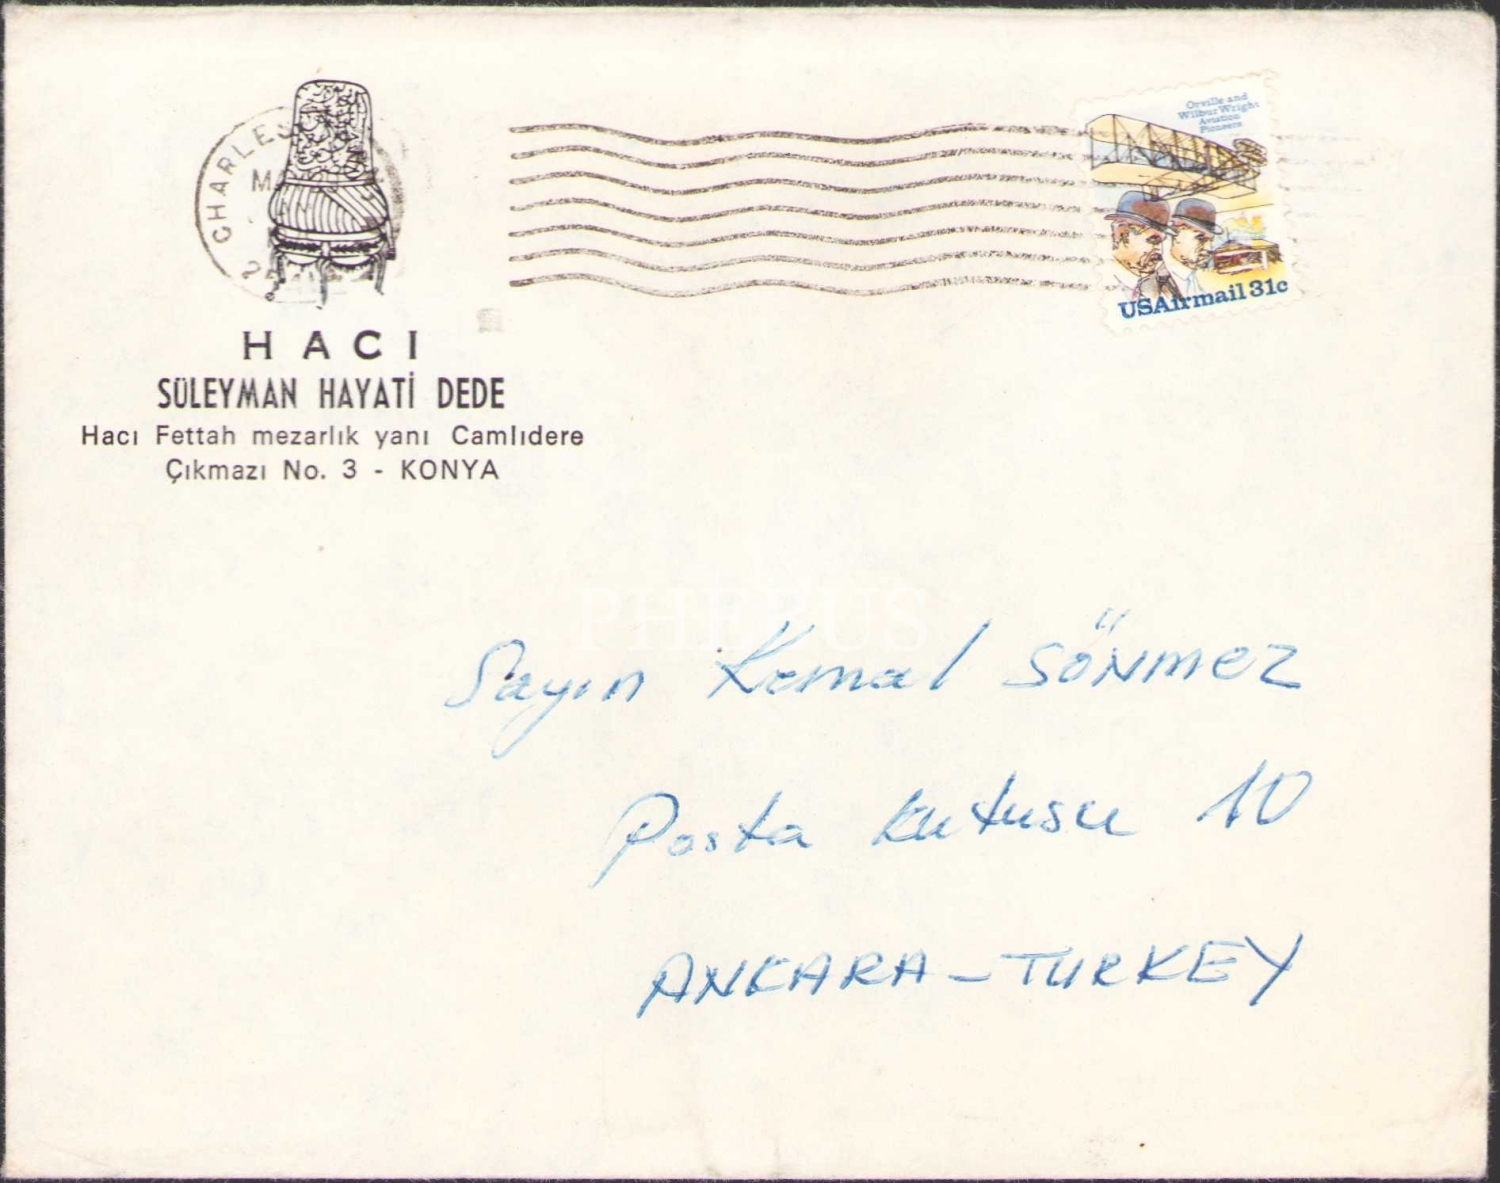 CHARLES
25
Orville and
Wilbur Wright
Aviation
Pioneers
USAirmail 31c
HACI
SÜLEYMAN HAYATİ DEDE
Hacı Fettah mezarlık yanı Camlıdere
Çıkmazı No. 3 - KONYA
PHEBUS
Sayın Kemal SÖNmez
Posta kutusu 10
ANKARA - TURKEY